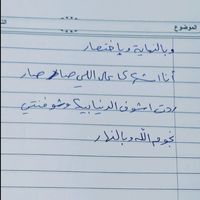 الموضوع
وبالنهاية وبإختصار
أنا اشهد على اللي صار
ردت اشوف الدنيا بيك وشوفتني
نجوم الله وبالنهار